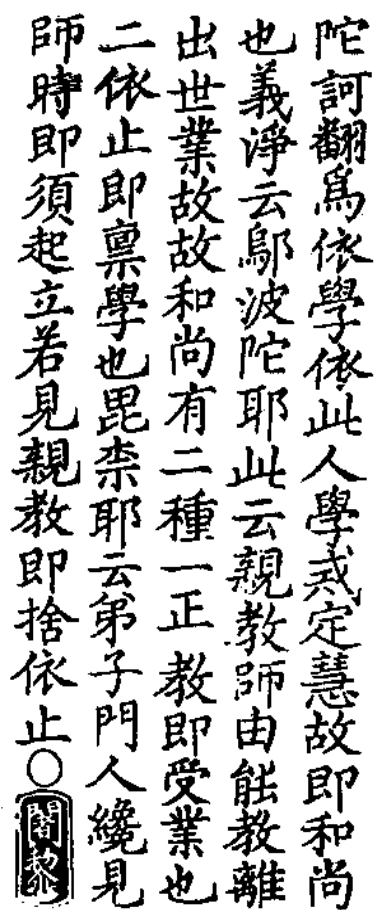 陀訶翻爲依學依此人學戒定慧故即和尚
也義淨云鄔波陀耶此云親教師由能教離
出世業故故和尚有二種一正教即受業也
二依止即禀學也毘柰耶云弟子門人纔見
師時即須起立若見親教即捨依止○闍黎